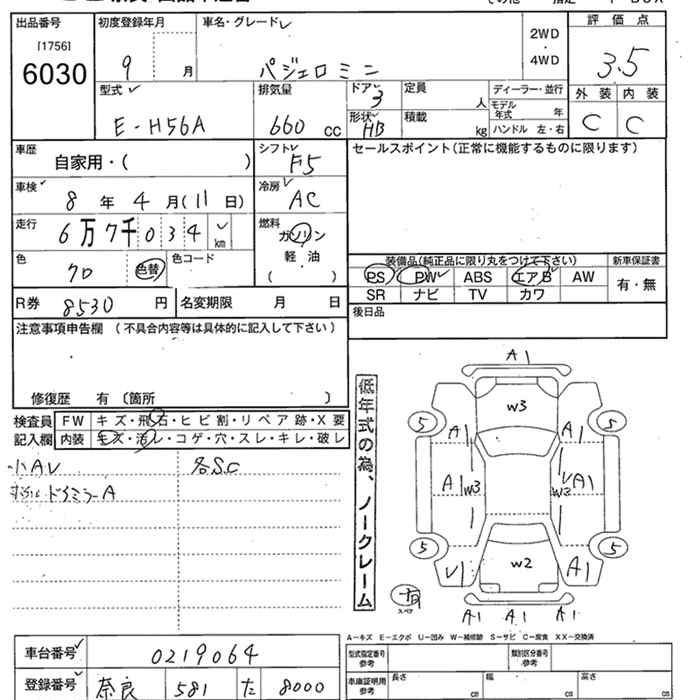 出品番号
[1756]
6030
初度登録年月
9 月
車名・グレード
パジェロミニ
2WD
・
4WD
評価点
3.5
外装 内装
C C
型式
E-H56A
排気量
660 cc
ドア
3
形状
HB
定員
人
積載
kg
ディーラー・並行
モデル年式 年
ハンドル 左・右
車歴
自家用・( )
シフト
F5
車検
8 年 4 月 (11 日)
冷房
AC
走行
6万7千034 km
燃料
ガソリン
軽油
( )
色
クロ
色替
色コード
R券 8530 円
名変期限 月 日
セールスポイント(正常に機能するものに限ります)
装備品(純正品に限り丸をつけて下さい)
PS PW ABS エアB AW
SR ナビ TV カワ
新車保証書
有・無
後日品
注意事項申告欄 (不具合内容等は具体的に記入して下さい)
修復歴 有 〔箇所 〕
検査員
記入欄
FW キズ・飛石・ヒビ割・リペア跡・X要
内装 キズ・汚レ・コゲ・穴・スレ・キレ・破レ
小AU
各SC
ドアミラーA
低年式の為、ノークレーム
A1
W3
5
5
A1
A1
A1
W3
W3
A1
5
5
W2
U1
A1
スペア
A1 A1 A1
A-キズ E-エクボ U-凹み W-補修跡 S-サビ C-腐食 XX-交換済
車台番号
0219064
登録番号
奈良 581 た 8000
型式指定番号
参考
類別区分番号
参考
車庫証明用
参考
長さ cm
幅 cm
高さ cm